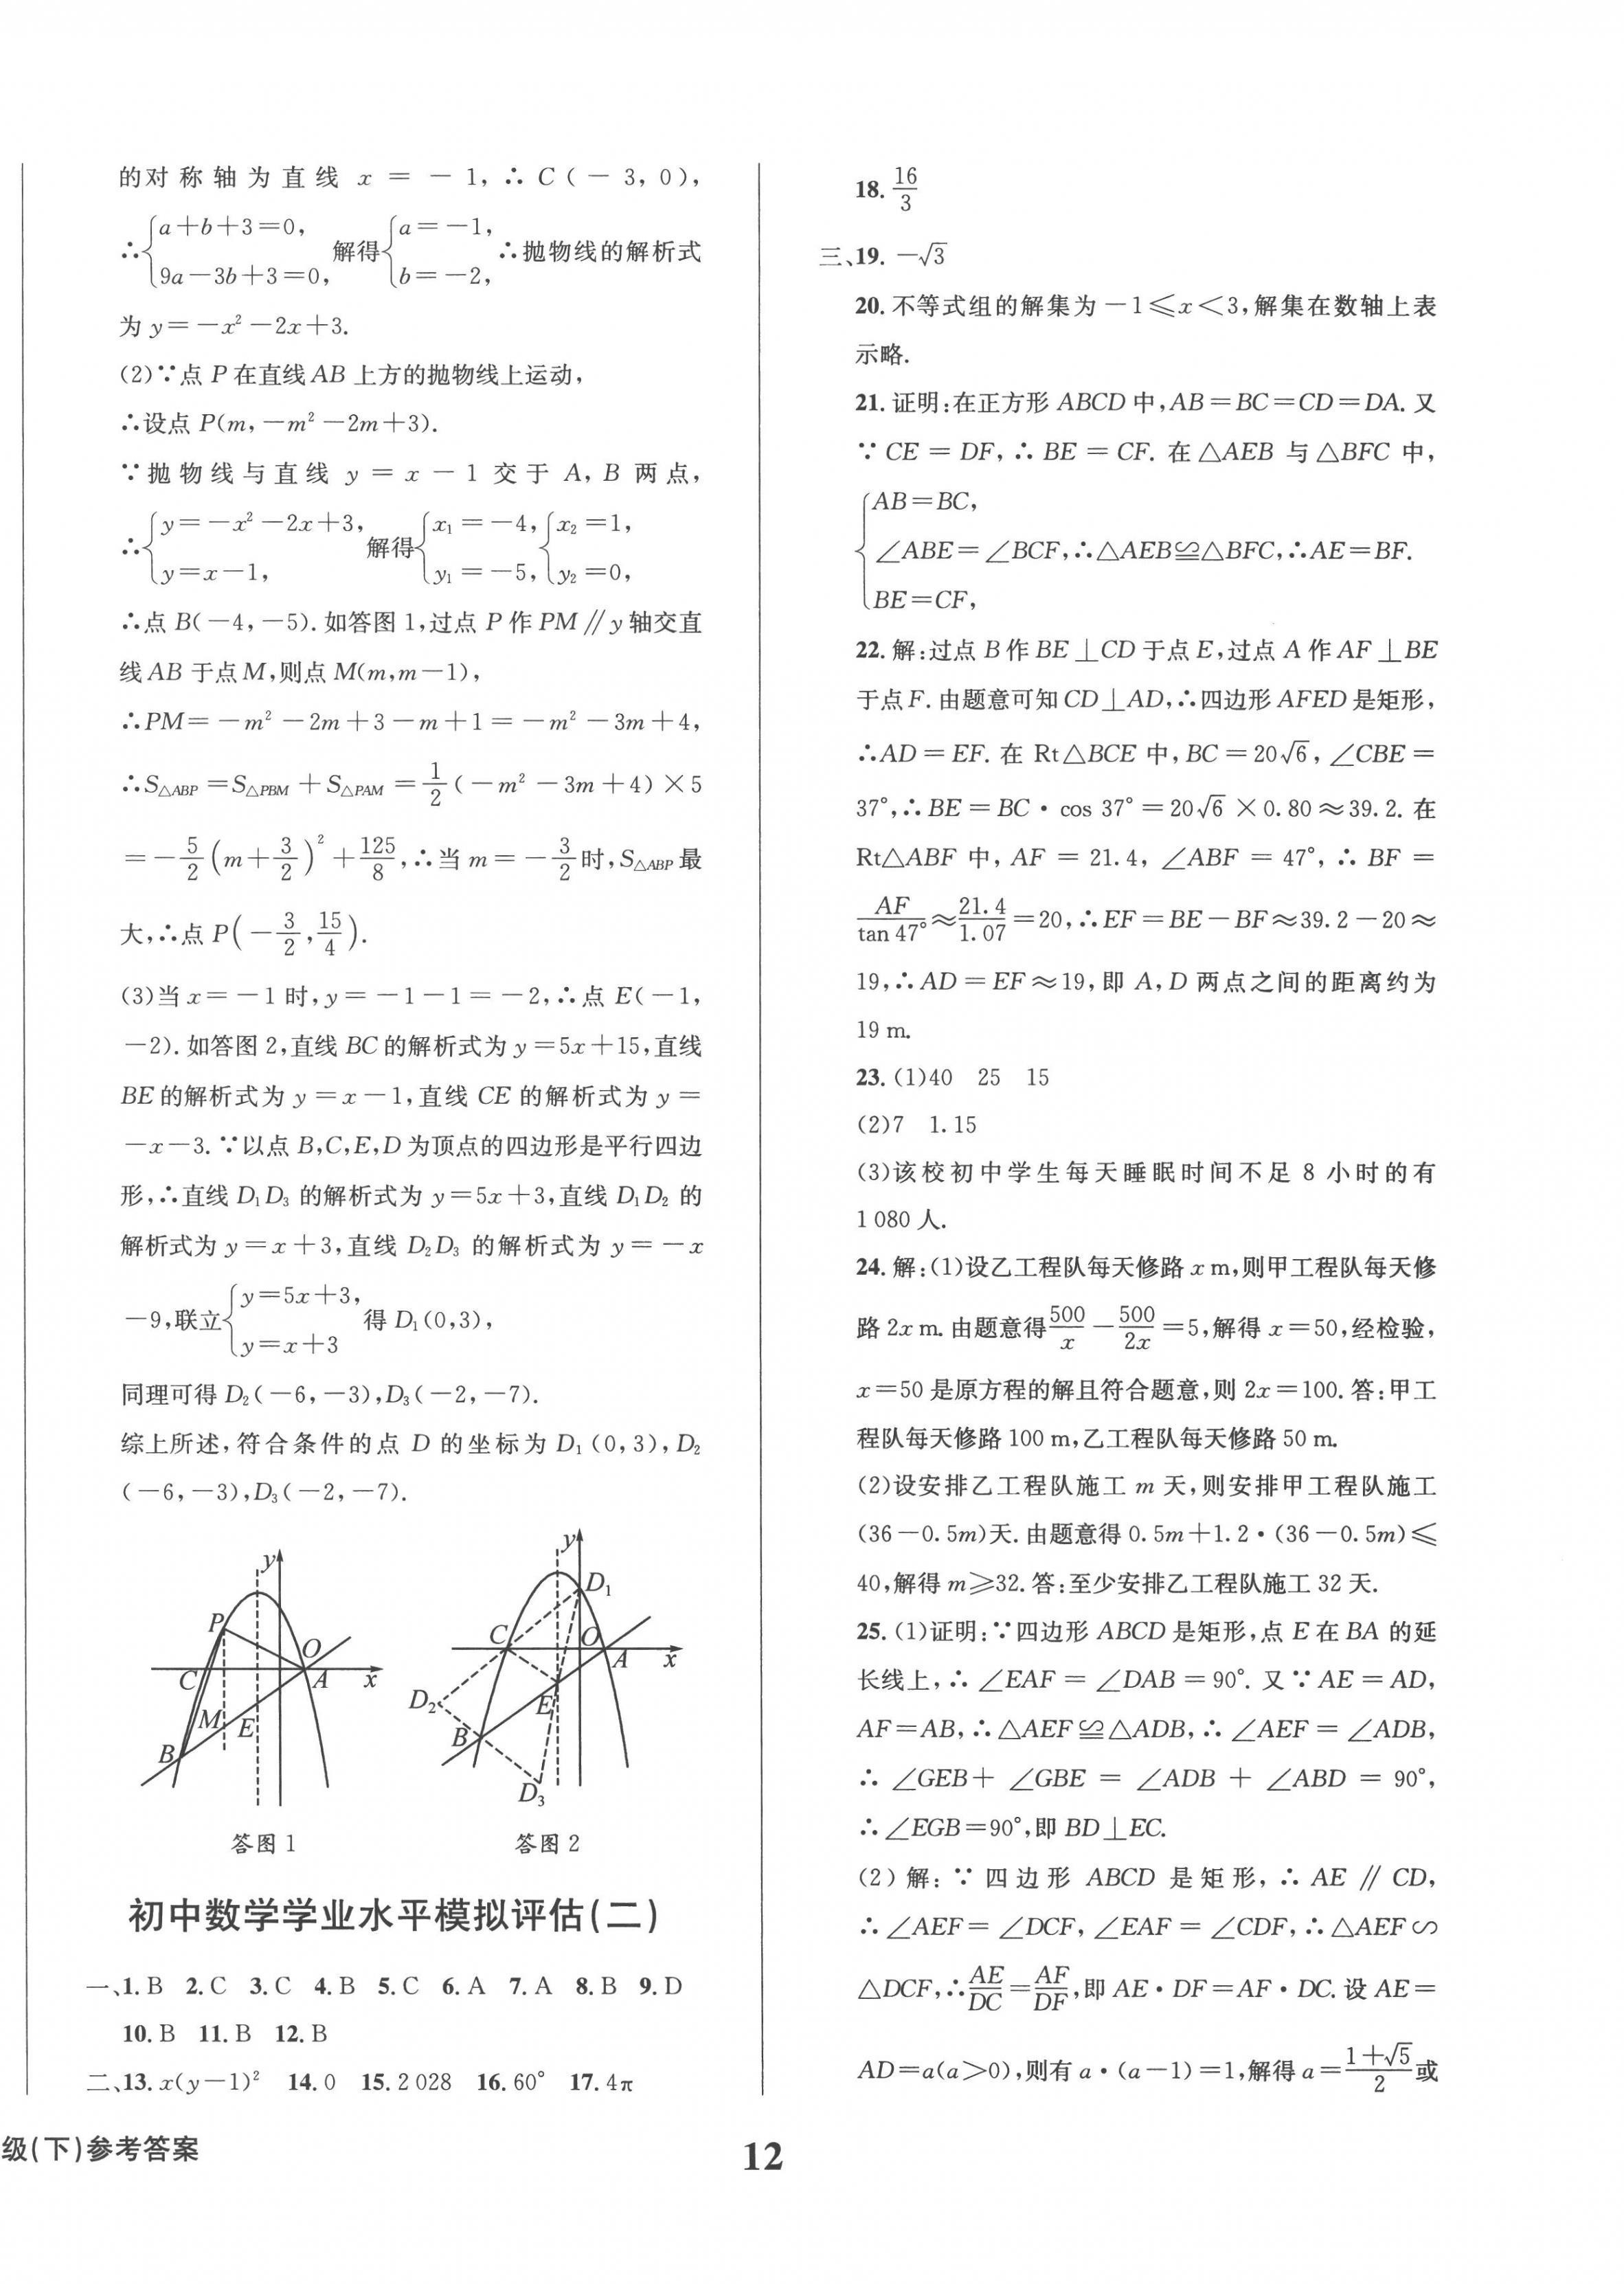 的对称轴为直线 x = −1, ∴ C(−3, 0),
∴{a+b+3=0, 9a−3b+3=0, 解得{a=−1, b=−2, ∴抛物线的解析式
为 y=−x²−2x+3.
(2)∵点 P 在直线 AB 上方的抛物线上运动,
∴设点 P(m, −m²−2m+3).
∵抛物线与直线 y = x − 1 交于 A, B 两点,
∴{y=−x²−2x+3, y=x−1, 解得{x₁=−4, y₁=−5, {x₂=1, y₂=0,
∴点 B(−4, −5). 如答图 1,过点 P 作 PM∥y 轴交直
线 AB 于点 M,则点 M(m,m−1),
∴PM=−m²−2m+3−m+1=−m²−3m+4,
∴S△ABP=S△PBM+S△PAM=1/2(−m²−3m+4)×5
=−5/2(m+3/2)²+125/8,∴当 m=−3/2时,S△ABP最
大,∴点 P(−3/2,15/4).
(3)当 x=−1 时,y=−1−1=−2,∴点 E(−1,
−2). 如答图 2,直线 BC 的解析式为 y=5x+15,直线
BE 的解析式为 y=x−1,直线 CE 的解析式为 y=
−x−3. ∵以点 B,C,E,D 为顶点的四边形是平行四边
形,∴直线 D₁D₃ 的解析式为 y=5x+3,直线 D₁D₂ 的
解析式为 y=x+3,直线 D₂D₃ 的解析式为 y=−x
−9,联立{y=5x+3, y=x+3 得 D₁(0,3),
同理可得 D₂(−6,−3),D₃(−2,−7).
综上所述,符合条件的点 D 的坐标为 D₁(0,3),D₂
(−6,−3),D₃(−2,−7).
y P O C A x M E B
答图 1
y D₁ C O A x D₂ E B D₃
答图 2
初中数学学业水平模拟评估(二)
一、1. B 2. C 3. C 4. B 5. C 6. A 7. A 8. B 9. D
10. B 11. B 12. B
二、13. x(y−1)² 14. 0 15. 2 028 16. 60° 17. 4π
18. 16/3
三、19. −√3
20. 不等式组的解集为−1≤x<3,解集在数轴上表
示略.
21. 证明:在正方形 ABCD 中,AB=BC=CD=DA. 又
∵ CE = DF, ∴ BE = CF. 在 △AEB 与 △BFC 中,
{AB=BC,
∠ABE=∠BCF,∴△AEB≌△BFC,∴AE=BF.
BE=CF,
22. 解:过点 B 作 BE⊥CD 于点 E,过点 A 作 AF⊥BE
于点 F. 由题意可知 CD⊥AD,∴四边形 AFED 是矩形,
∴AD=EF. 在 Rt△BCE 中,BC=20√6,∠CBE=
37°,∴BE=BC·cos 37°=20√6×0.80≈39.2. 在
Rt△ABF 中, AF = 21.4, ∠ABF = 47°, ∴ BF =
AF/tan 47°≈21.4/1.07=20,∴EF=BE−BF≈39.2−20≈
19,∴AD=EF≈19,即 A,D 两点之间的距离约为
19 m.
23. (1)40 25 15
(2)7 1.15
(3)该校初中学生每天睡眠时间不足 8 小时的有
1 080 人.
24. 解:(1)设乙工程队每天修路 x m,则甲工程队每天修
路 2x m. 由题意得500/x−500/2x=5,解得 x=50,经检验,
x=50 是原方程的解且符合题意,则 2x=100. 答:甲工
程队每天修路 100 m,乙工程队每天修路 50 m.
(2)设安排乙工程队施工 m 天,则安排甲工程队施工
(36−0.5m)天. 由题意得 0.5m+1.2·(36−0.5m)≤
40,解得 m≥32. 答:至少安排乙工程队施工 32 天.
25. (1)证明:∵四边形 ABCD 是矩形,点 E 在 BA 的延
长线上,∴∠EAF=∠DAB=90°. 又∵AE=AD,
AF=AB,∴△AEF≌△ADB,∴∠AEF=∠ADB,
∴ ∠GEB+∠GBE = ∠ADB + ∠ABD = 90°,
∴∠EGB=90°,即 BD⊥EC.
(2)解:∵四边形 ABCD 是矩形, ∴ AE∥CD,
∴∠AEF=∠DCF,∠EAF=∠CDF,∴△AEF∽
△DCF,∴AE/DC=AF/DF,即 AE·DF=AF·DC. 设 AE=
AD=a(a>0),则有 a·(a−1)=1,解得 a=(1+√5)/2或
级(下)参考答案
12